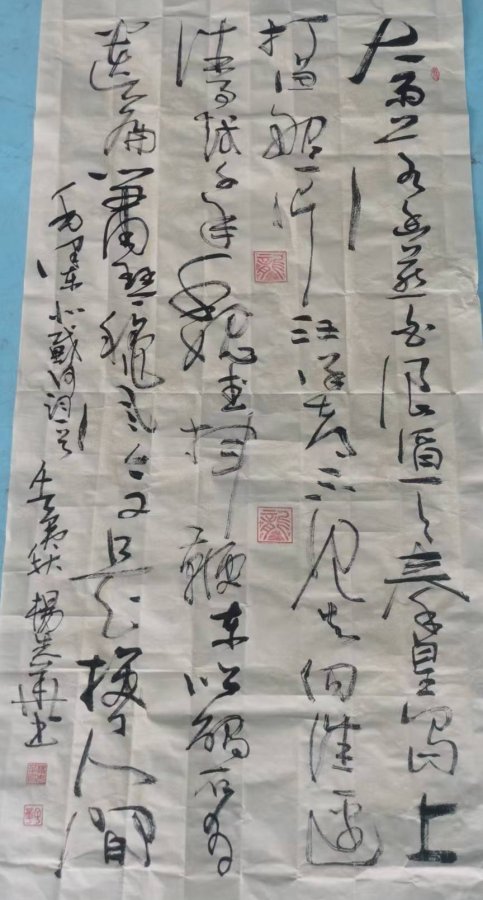 大雨落幽燕白浪滔天秦皇岛上
打渔船一片汪洋都不见知向谁边
往事越千年魏武挥鞭东临碣石有
遗篇萧瑟秋风今又是换了人间
毛泽东北戴河词一首
秋 楊志 书
龍
龍